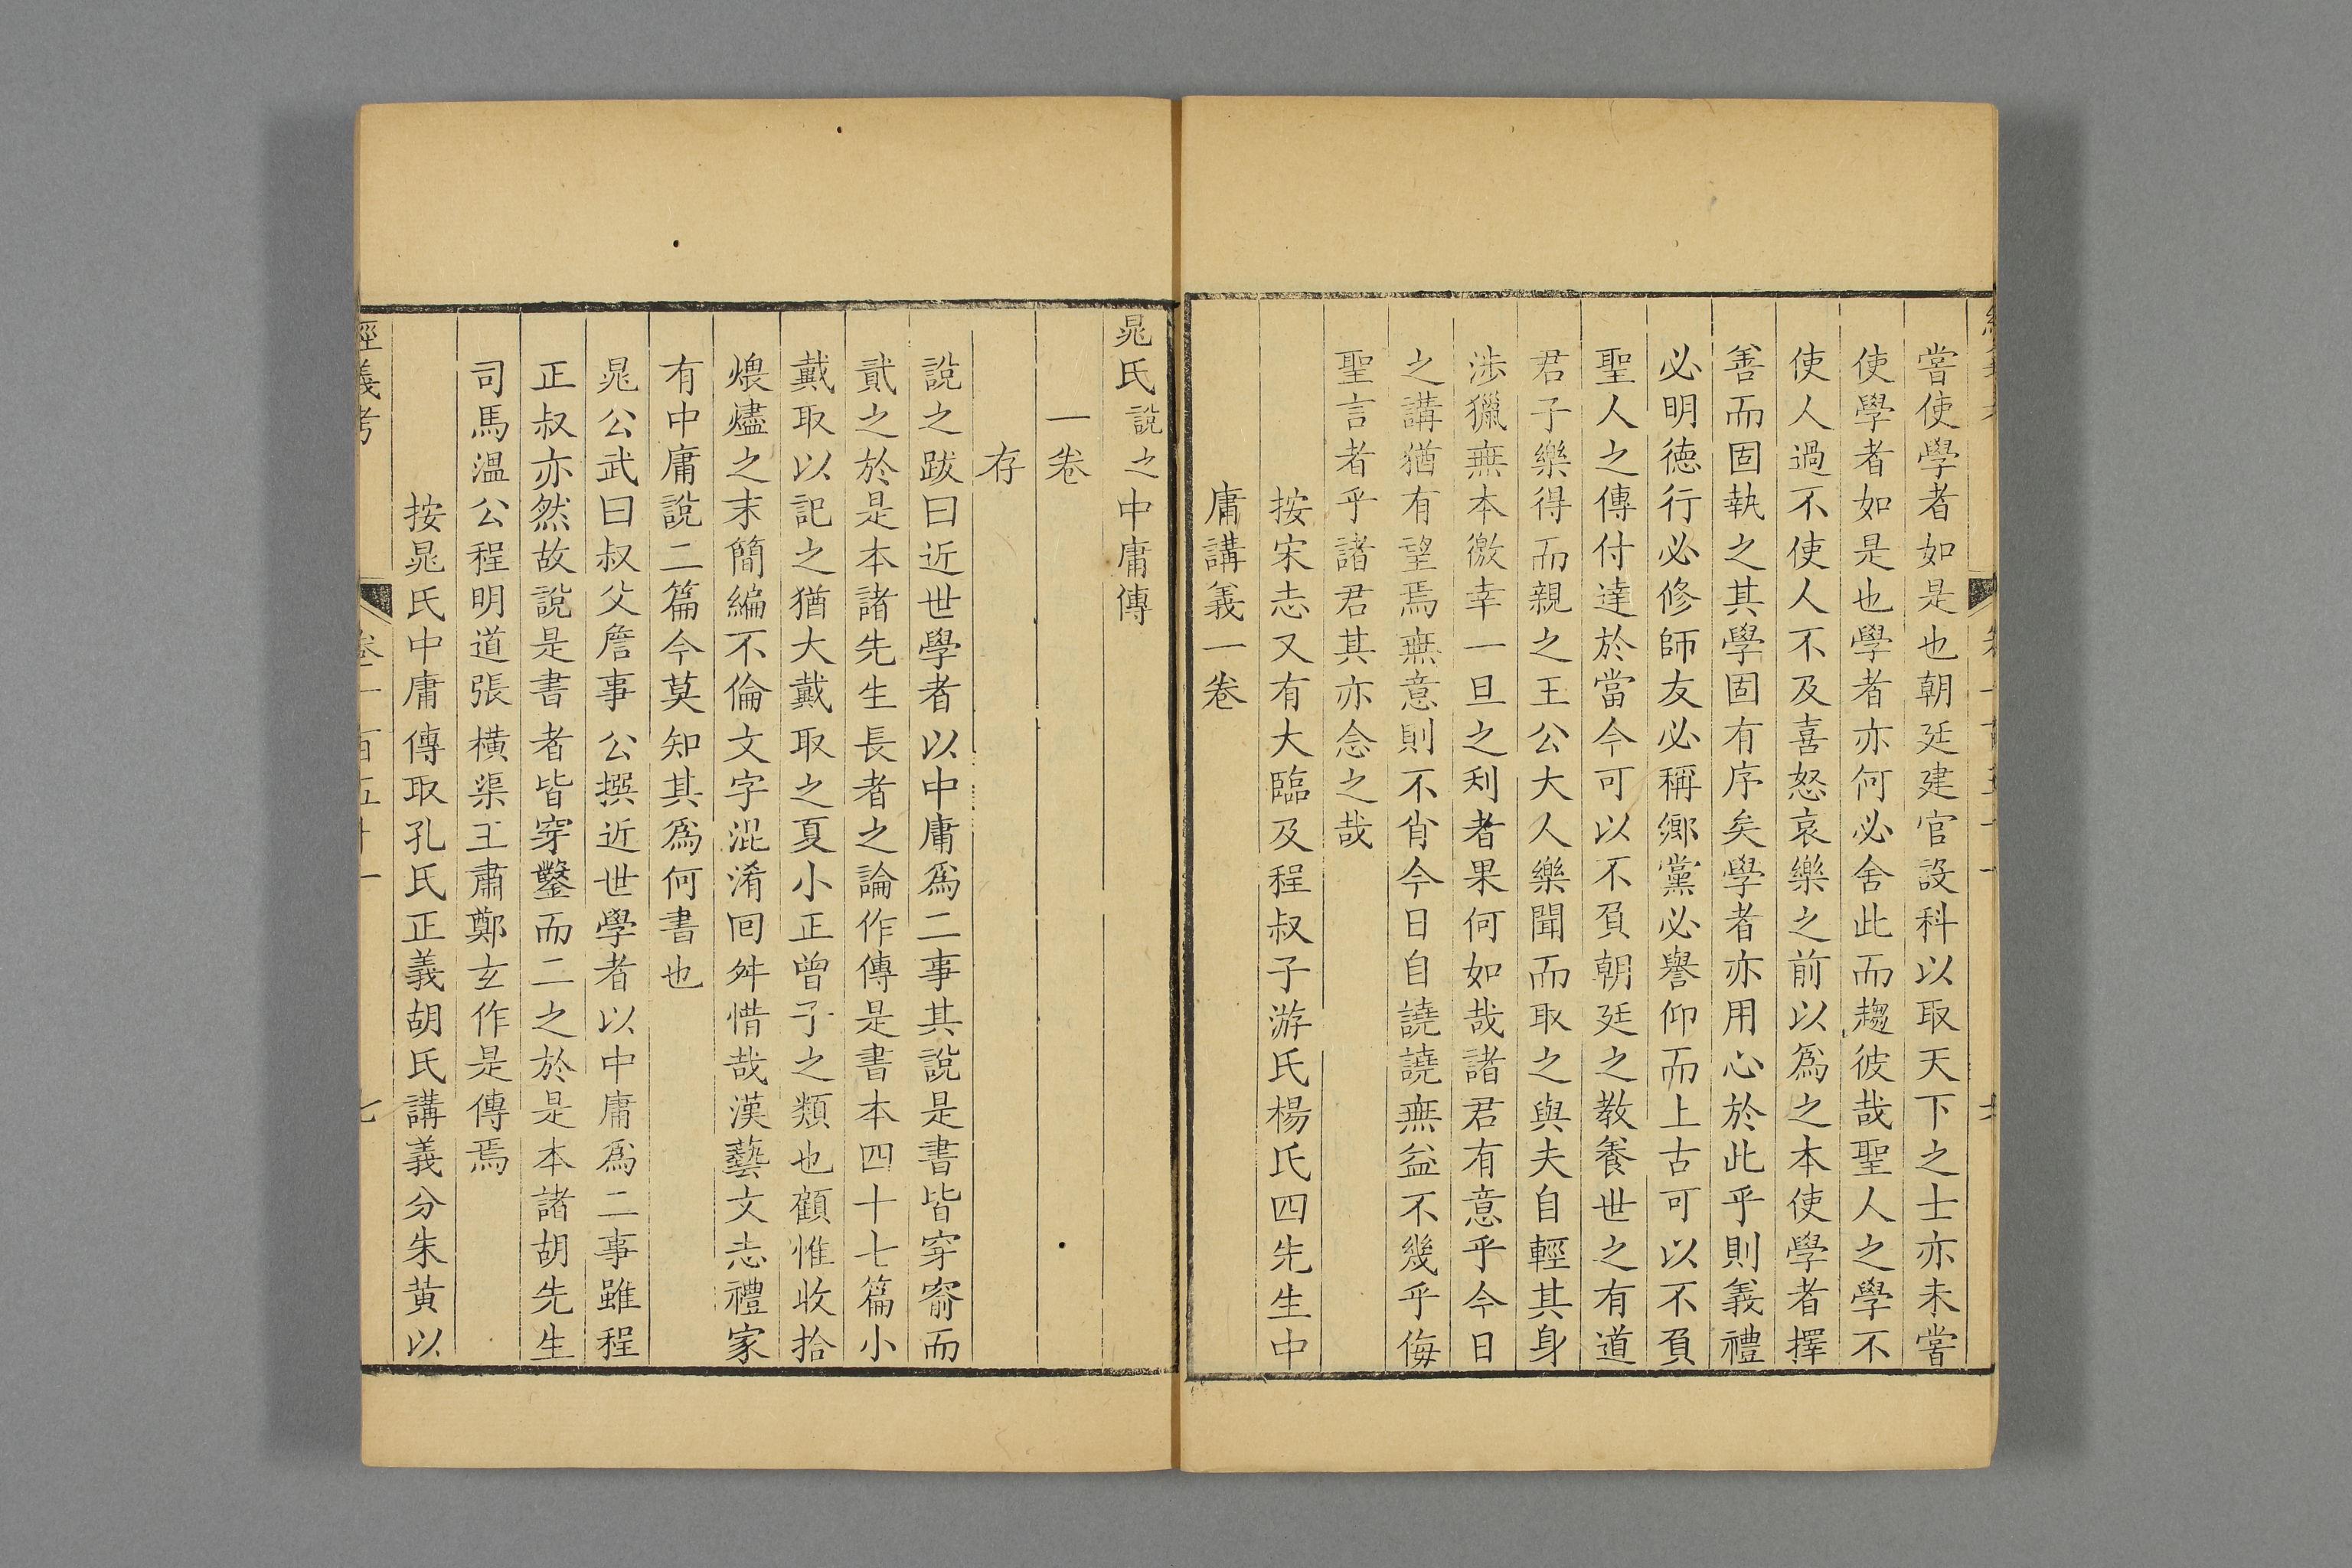 嘗使學者如是也朝廷建官設科以取天下之士亦未嘗
使學者如是也學者亦何必舍此而趨彼哉聖人之學不
使人過不使人不及喜怒哀樂之前以爲之本使學者擇
善而固執之其學固有序矣學者亦用心於此乎則義禮
必明德行必修師友必稱鄉黨必譽仰而上古可以不負
聖人之傳付達於當今可以不負朝廷之教養世之有道
君子樂得而親之王公大人樂聞而取之與夫自輕其身
涉獵無本徼幸一旦之利者果何如哉諸君有意乎今日
之講猶有望焉無意則不肖今日自譊譊無益不幾乎侮
聖言者乎諸君其亦念之哉
按宋志又有大臨及程叔子游氏楊氏四先生中
庸講義一卷
晁氏說之中庸傳
一卷
存
說之跋曰近世學者以中庸爲二事其說是書皆穿窬而
貳之於是本諸先生長者之論作傳是書本四十七篇小
戴取以記之猶大戴取之夏小正曾子之類也顧惟收拾
煨燼之末簡編不倫文字混淆囘舛惜哉漢藝文志禮家
有中庸說二篇今莫知其爲何書也
晁公武曰叔父詹事公撰近世學者以中庸爲二事雖程
正叔亦然故說是書者皆穿鑿而二之於是本諸胡先生
司馬溫公程明道張橫渠王肅鄭玄作是傳焉
按晁氏中庸傳取孔氏正義胡氏講義分朱黃以
經義考
卷一百五十一
七